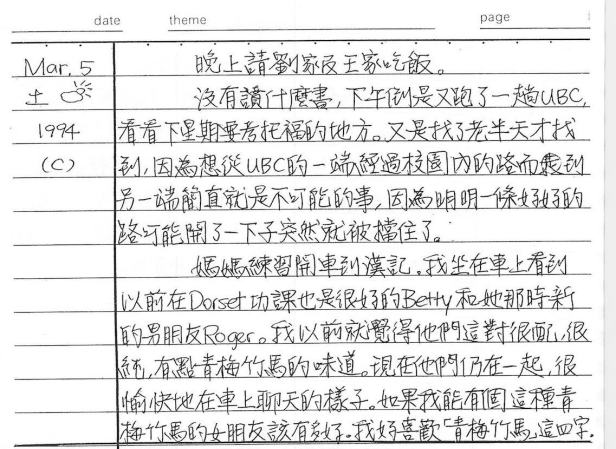 date theme page
Mar. 5 晚上請劉家及王家吃飯。
土 沒有讀什麼書，下午倒是又跑了一趟UBC,
1994 看看下星期要考托福的地方。又是找了老半天才找
(C) 到，因為想從UBC的一端經過校園內的路而裏到
另一端簡直就是不可能的事，因為明明一條好好的
路可能開了一下子突然就被擋住了。
媽媽練習開車到漢記。我坐在車上看到
以前在Dorset功課也是很好的Betty和她那時新
的男朋友Roger。我以前就覺得他們這對很配，很
純，有點青梅竹馬的味道。現在他們仍在一起，很
愉快地在車上聊天的樣子。如果我能有個這種青
梅竹馬的女朋友該有多好。我好喜歡「青梅竹馬」這四字.